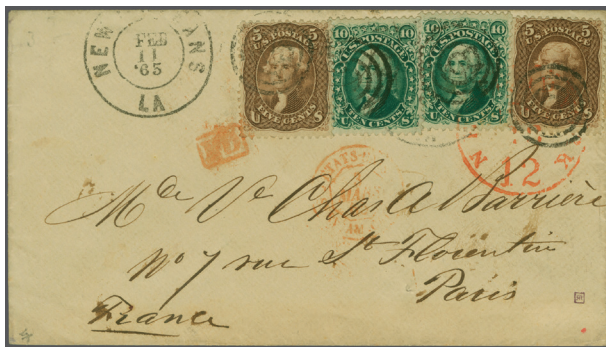 NEW ORLEANS
FEB
11
'65
LA
5 U.S. POSTAGE 5
FIVE CENTS
U S
10 U.S. POSTAGE 10
TEN CENTS
U S
10 U.S. POSTAGE 10
TEN CENTS
U S
5 U.S. POSTAGE 5
FIVE CENTS
U S
PD
12
Mde Ve Chas A Barrière
No 7 rue St Florentin
Paris
France